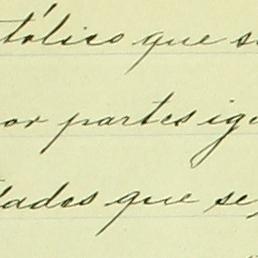 tólico que se
por partes igu
tados que se